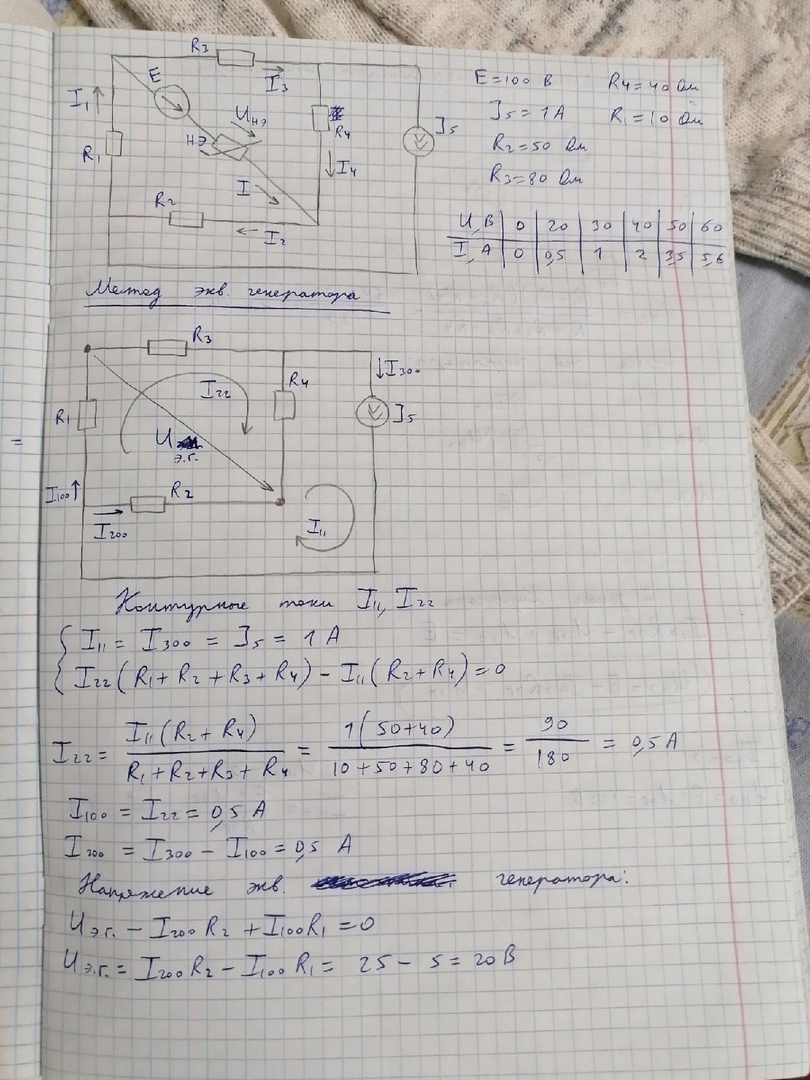 R3
E = 100 В R4 = 40 Ом
E I3
J5 = 1 А R1 = 10 Ом
I1 Uнэ R4 J5
R2 = 50 Ом
R1 нэ I4
R3 = 80 Ом
R2 I
I2
U, В 0 20 30 40 50 60
I, А 0 0,5 1 2 3,5 5,6
Метод экв. генератора
R3
I300
R1 I22 R4 J5
U э.г.
I100 R2
I200 I11
=
Контурные токи I11, I22
{ I11 = I300 = J5 = 1 А
I22 (R1 + R2 + R3 + R4) – I11 (R2 + R4) = 0
I22 = I11 (R2 + R4) / R1 + R2 + R3 + R4 = 1 (50+40) / 10+50+80+40 = 90 / 180 = 0,5 А
I100 = I22 = 0,5 А
I200 = I300 – I100 = 0,5 А
Напряжение экв. генератора:
Uэ.г. – I200 R2 + I100 R1 = 0
Uэ.г. = I200 R2 – I100 R1 = 25 – 5 = 20 В